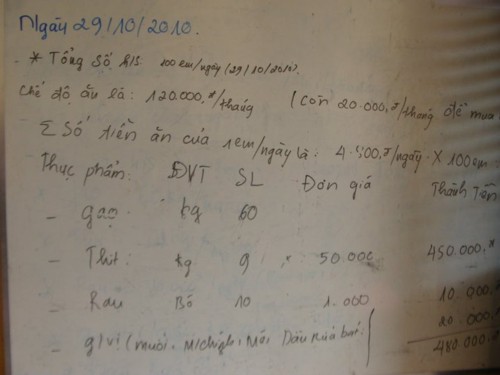 Ngày 29/10/2010.
- * Tổng số h/s 100 em/ngày (29/10/2010).
chế độ ăn là: 120.000,đ/tháng (còn 20.000,đ/tháng để mua
Σ Số tiền ăn của 1em/ngày là: 4.800,đ/ngày x 100em
Thực phẩm: ĐVT SL Đơn giá Thành tiền
- Gạo kg 60
- Thịt: kg 9 50.000 450.000,đ
- Rau Bó 10 1.000 10.000,đ
- g/vị (muối, michính, Mắm Dầu Rửa bát: 20.000,đ
480.000,đ